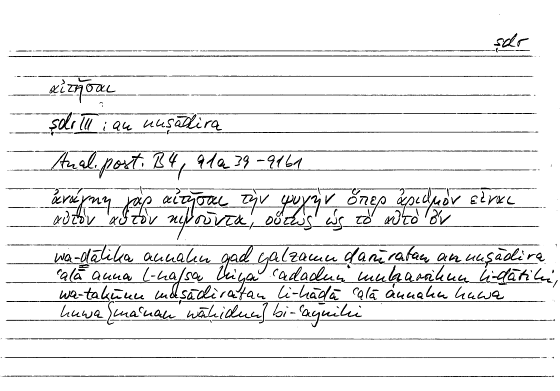 ṣdr
αἰτῆσαι
ṣdr III : an nuṣādira
Anal. post. B4, 91a39-91b1
ἀνάγκη γὰρ αἰτῆσαι τὴν ψυχὴν ὅπερ ἀριθμὸν εἶναι
αὐτὸν αὑτὸν κινοῦντα, οὕτως ὡς τὸ αὐτὸ ὄν
wa-ḏālika annahu qad yalzamu ḍarūratan an nuṣādira
ʿalā anna l-nafsa hiya ʿadadun muḥarrikun li-ḏātihi,
wa-takūnu muṣādiratan li-hāḏā ʿalā annahu huwa
huwa [maʿnan wāḥidun] bi-ʿaynihi